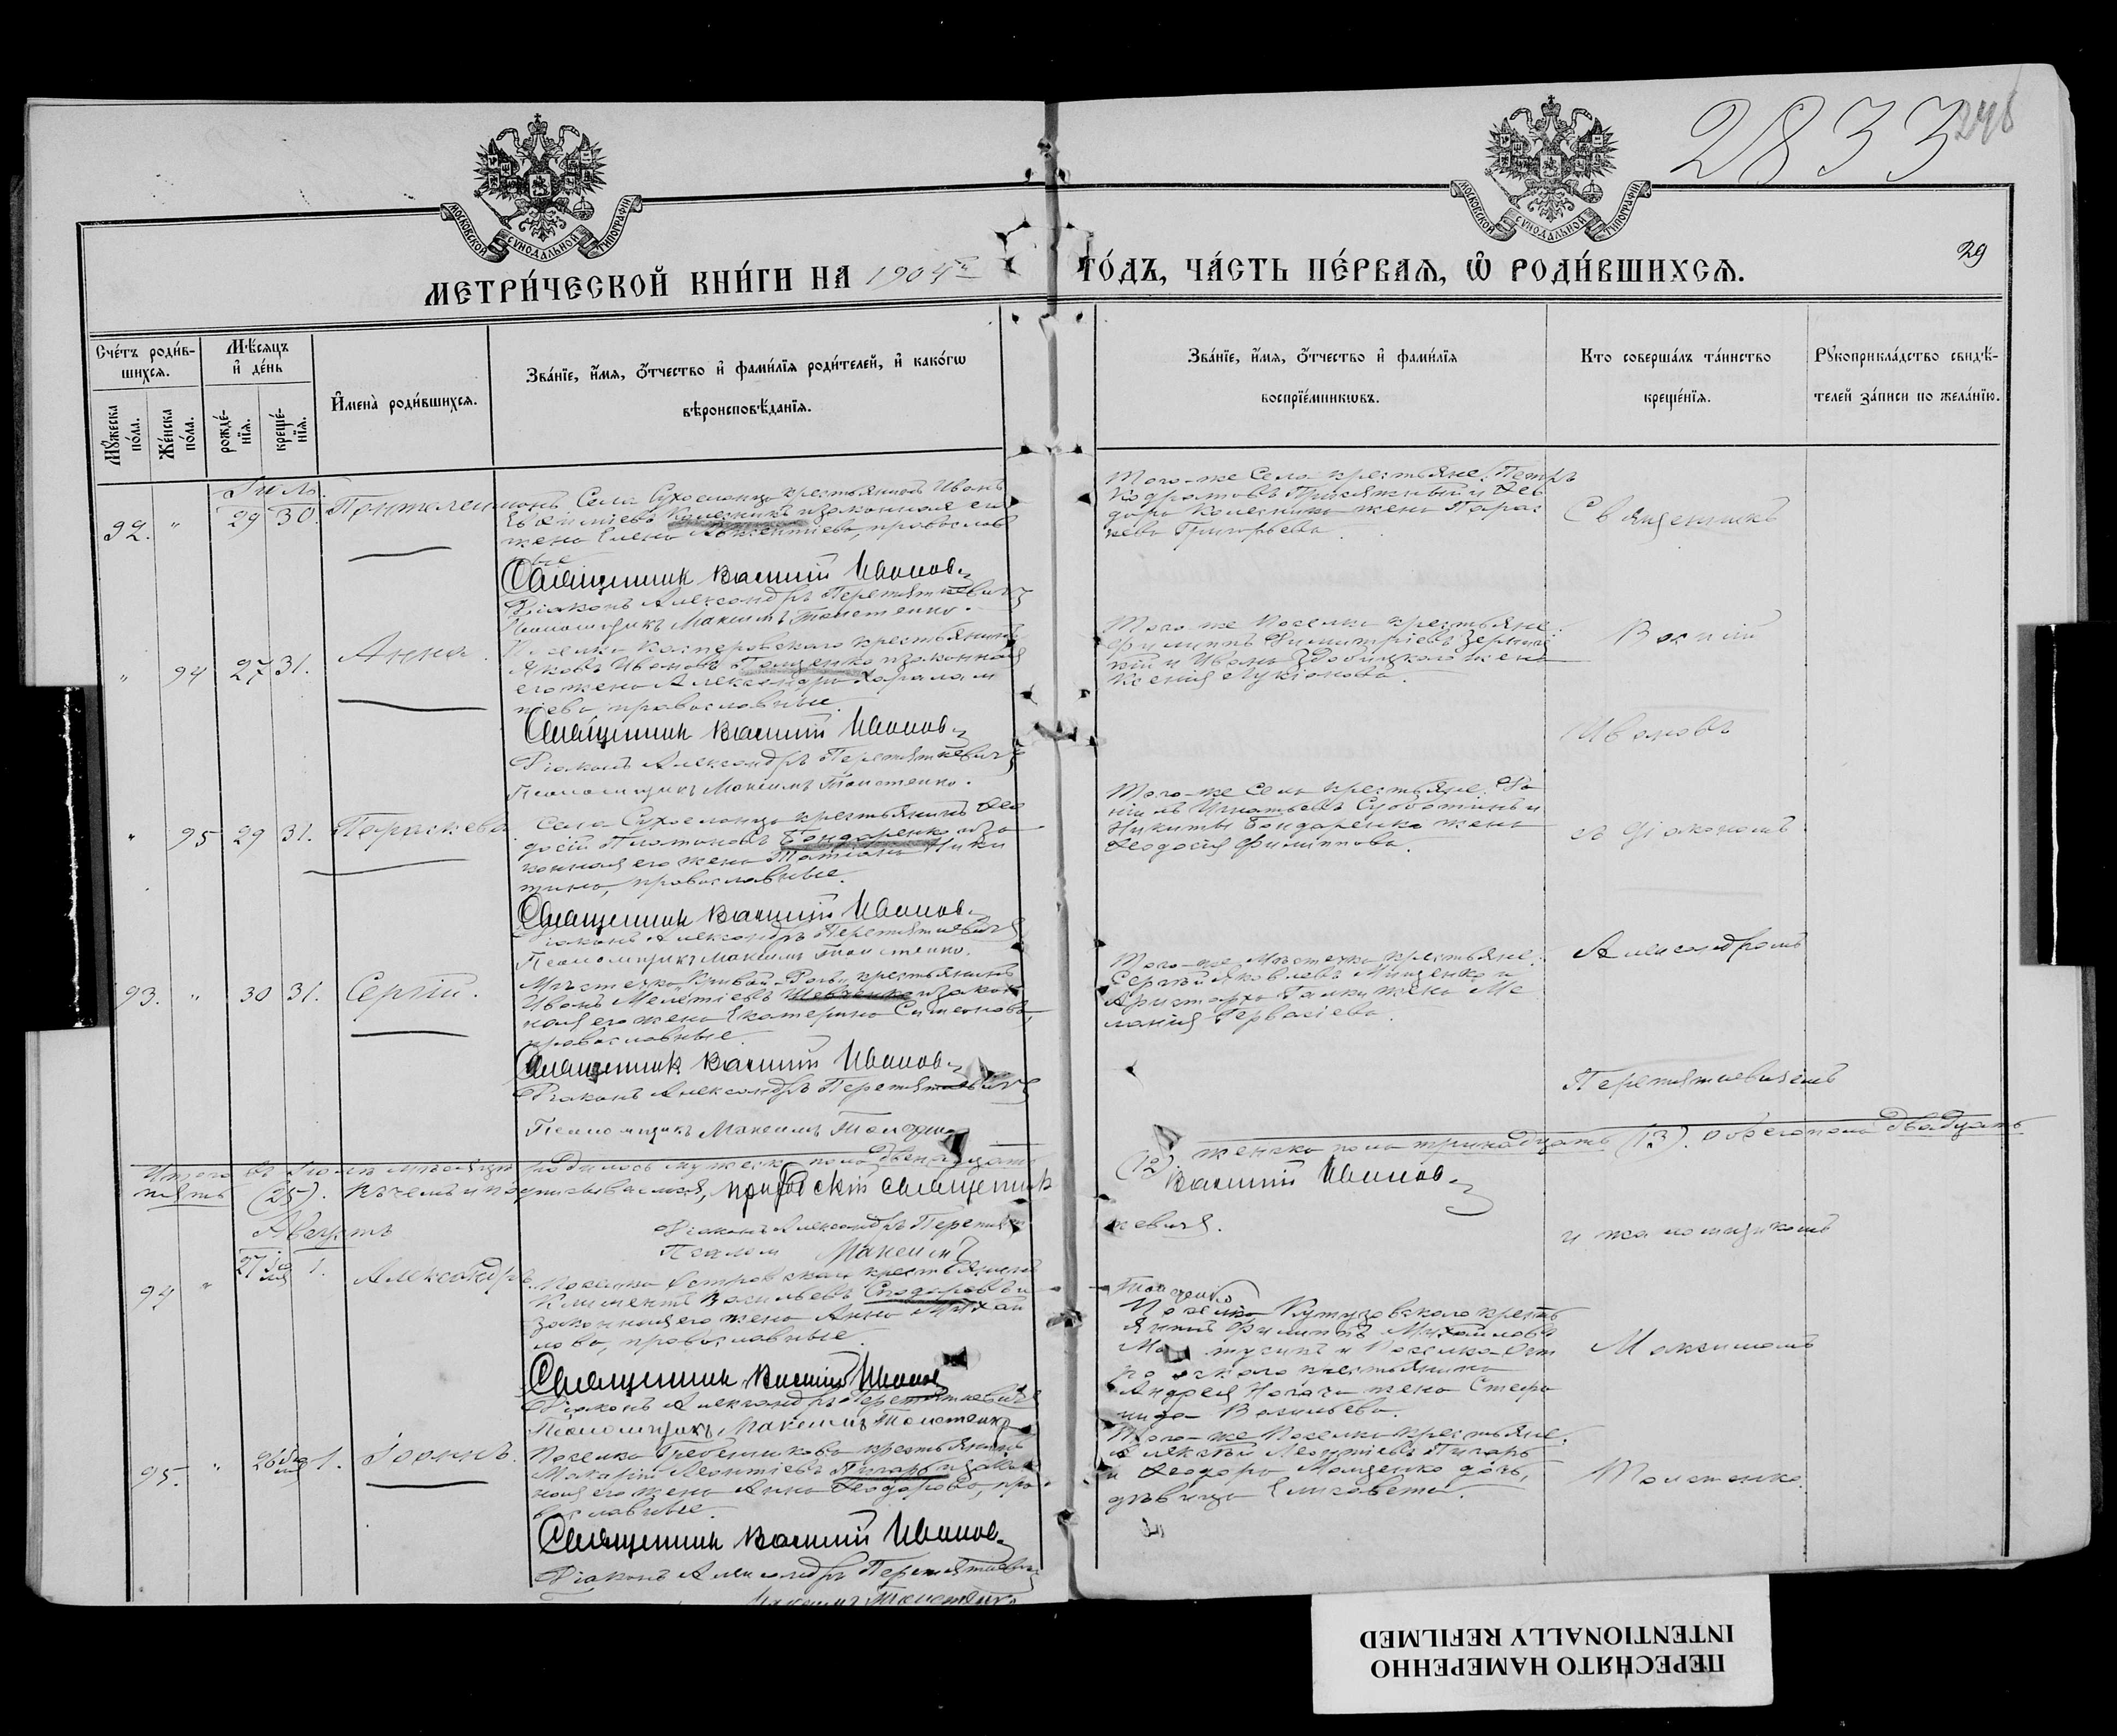 2833
248
МОСКОВСКОЙ СУНОДАЛЬНОЙ ТИПОГРАФІИ
МОСКОВСКОЙ СУНОДАЛЬНОЙ ТИПОГРАФІИ
29
МЕТРИ́ЧЕСКОЙ КНИ́ГИ НА 1904 ГО́ДЪ, ЧА́СТЬ ПЕ́РВАЯ, Ѡ РОДИ́ВШИХСЯ.
Сче́тъ роди́вшихся.
Мꙋ́жеска по́ла.
Же́нска по́ла.
Мѣ́сяцъ и де́нь
рожде́нїя.
креще́нїя.
Имена̀ роди́вшихся.
Зва́нїе, и́мя, ѻ́тчество и фами́лїя роди́телей, и како́гѡ вѣроисповѣ́данїя.
Зва́нїе, и́мя, ѻ́тчество и фами́лїя воспрїе́мникѡвъ.
Кто соверша́лъ та́инство креще́нїя.
Рꙋкоприкла́дство свидѣ́телей за́писи по жела́нїю.
Іюль
92. " 29 30. Пантелеимонъ.
Села Сухоеланца крестьянинъ Иванъ
Евѳиміевъ Колесникъ и законная его
жена Елена, православ
ные
Священник Василий Иванов
Діаконъ Александръ Перетяткевичъ
Псаломщикъ Максимъ Толстенко.
Того-же Села крестьяне: Петръ
Кодратовъ и Ѳео
дора Колесника жена Парас
кева Григорьева.
Священникъ
" 94 27 31. Анна.
Поселка крестьянинъ
Яковъ Ивановъ и законная
его жена Александра Харалам
піева, православные.
Священник Василий Иванов
Діаконъ Александръ Перетяткевичъ
Псаломщикъ Максимъ Толстенко.
Того-же Поселка крестьяне:
Филиппъ Димитріевъ
и Ивана жена
Ксенія Лукіанова.
Василій
Ивановъ
" 95 29 31. Параскева.
Села Сухоеланца крестьянинъ Ѳео
досій Платоновъ Бондаренко и за
конная его жена Татіана Ники
тина, православные.
Священник Василий Иванов
Діаконъ Александръ Перетяткевичъ
Псаломщикъ Максимъ Толстенко.
Того-же Села крестьяне: Да
ніилъ Игнатьевъ Суботинъ и
Никиты Бондаренка жена
Ѳеодосія Филиппова.
съ діакономъ
93. " 30 31. Сергій.
Мѣстечка Кривой-Рогъ крестьянинъ
Иванъ Мелетіевъ Шевченко и закон
ная его жена Екатерина Симеонова,
православные.
Священник Василий Иванов
Діаконъ Александръ Перетяткевичъ
Псаломщикъ Максимъ
Того-же Мѣстечка крестьяне:
Сергѣй Яковлевъ Мищенко и
Аристарха жена Ме
ланія Гервасіева.
Александромъ
Перетяткевичемъ
Итого въ Іюлѣ мѣсяцѣ родилось мужеска пола двенадцать (12). женска пола тринадцать (13). а обоего пола двадцать
пять (25). въ чемъ и подписываемся, приходскій священник Василий Иванов
Діаконъ Александръ Перетяткевичъ.
Псалом Максимъ Толстенко
Августъ
94 " 27 Іюля 1. Александръ.
Поселка крестьянинъ
Климентъ Васильевъ и
законная его жена Анна Михаи
лова, православные.
Священник Василий Иванов
Діаконъ Александръ Перетяткевичъ
Псаломщикъ Максимъ Толстенко
Поселка Кутузовскаго кресть
янинъ Филиппъ Михайловъ
и Поселка
крестьянина
Андрея жена Стефа
нида Васильева.
и псаломщикомъ
Максимомъ
95. " 26 Іюля 1. Іоаннъ.
Поселка Гребенникова крестьянинъ
Макарій Леонтіевъ Пигарь и закон
ная его жена Анна Ѳеодорова, пра
вославные.
Священник Василий Иванов
Діаконъ Александръ Перетяткевичъ
Максимъ Толстенко
Того-же Поселка крестьяне:
Алексѣй Леонтіевъ Пигарь
и Ѳеодора дочь,
дѣвица Елисавета.
Толстенко.
ПЕРЕСНЯТО НАМЕРЕННО
INTENTIONALLY REFILMED